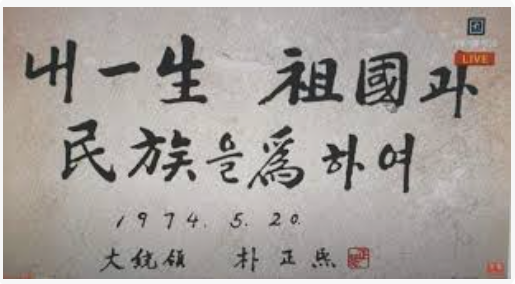 내一生 祖國과
民族을 爲하여
1974. 5. 20.
大統領 朴正熙
LIVE